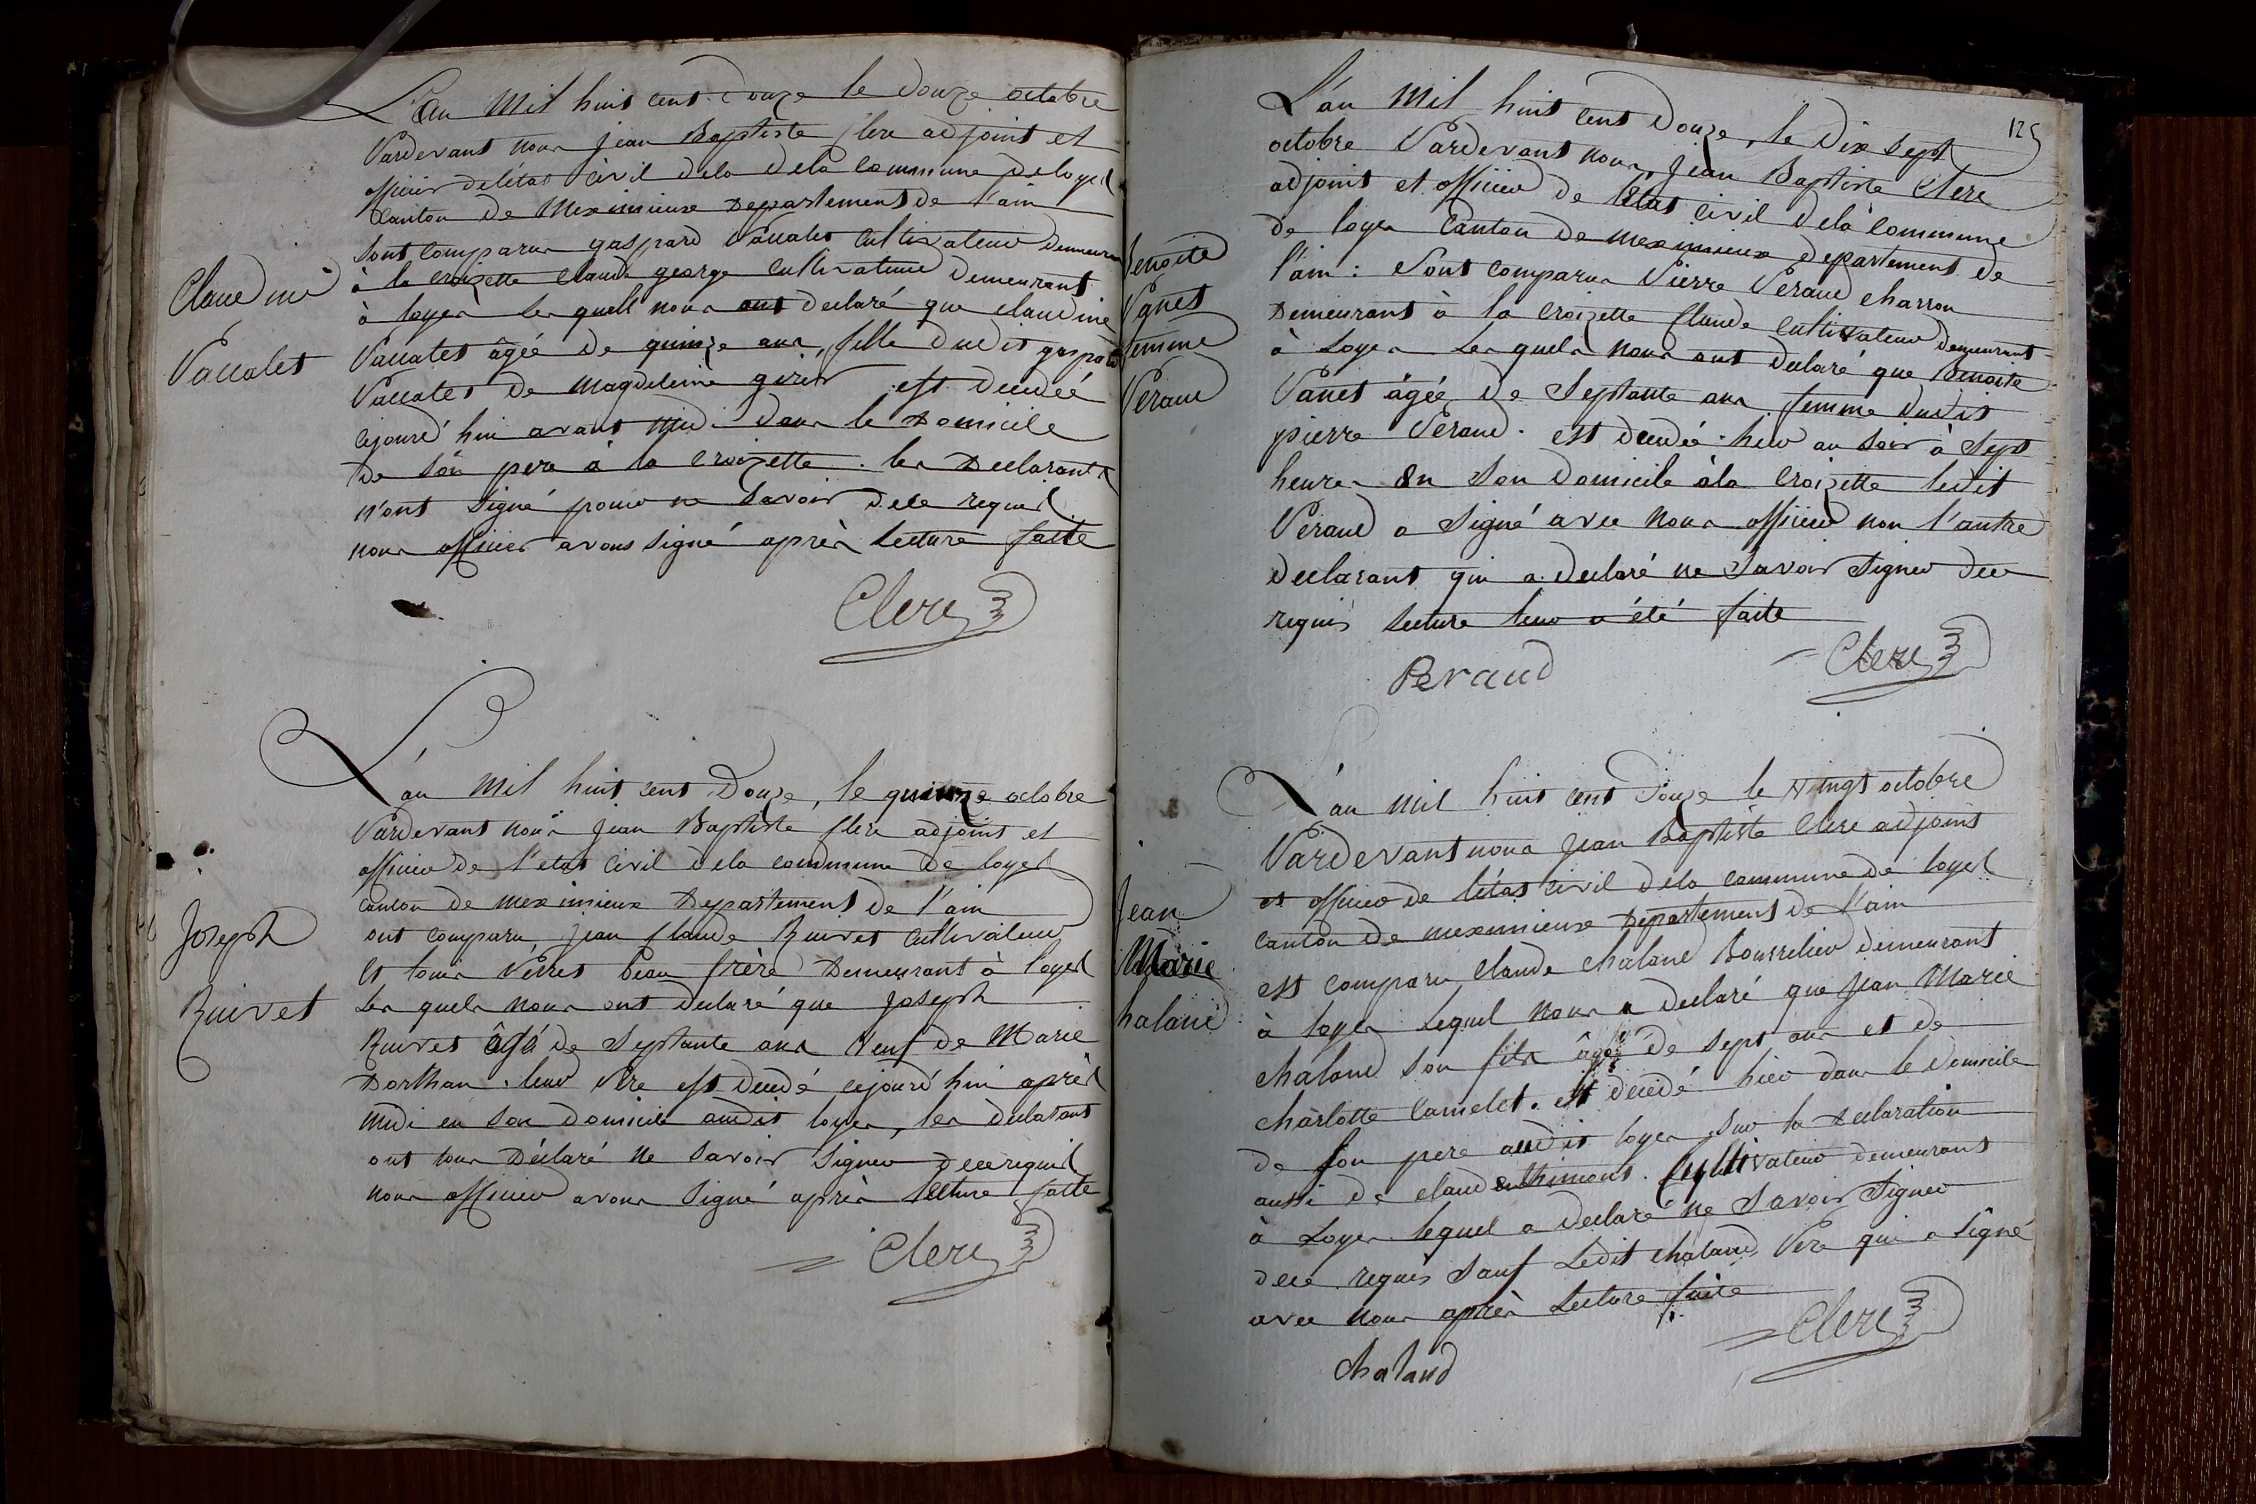 L'an mil huit cent douze le douze octobre
Pardevant nous jean Baptiste Clere adjoint et
officier de létat civil dela dela commune de loyes
Canton de Meximieux Departement de l'ain
sont comparus gaspard Vaccalet cultivateur demeurant
à la croizette Claude george cultivateur demeurant
à loyes les quels nous ont declaré que claudine
Vaccalet âgée de quinze ans, fille dudit gaspard
Vaccalet de magdeleine est decedée
cejourd'hui avant midi dans le Domicile
de son pere à la croizette. les Declarants
n'ont signé pour ne savoir de ce requis
nous officier avons signé après lecture faite
Clere
Claudine
Vaccalet
L'an mil huit cent Douze, le quinze octobre
Pardevant nous jean Baptiste Clere adjoint et
officier de l'etat civil dela commune de loyes
canton de meximieux Departement de l'ain
ont comparu jean Claude Ruivet cultivateur
et louis Verret beau frère Demeurant à loyes
les quels nous ont declaré que joseph
Ruivet âgé de septante ans veuf de Marie
Dorthan. leur Père est decedé cejourd'hui après
midi en son domicile audit loyes, les déclarants
ont tous Déclaré ne savoir signer de ce requis
nous officier avons signé après lecture faite
Clere
Joseph
Ruivet
125
L'an mil huit cent Douze, le dix sept
octobre Pardevant nous, Jean Baptiste Clere
adjoint et officier de l'état civil dela commune
de loyes Canton de meximieux departement de
l'ain: Sont comparus Pierre Peraud charron
Demeurant à la croizette Claude cultivateur demeurant
à Loyes Les quels nous ont declaré que Benoite
Panet âgée de Septante ans femme dudit
pierre Peraud. est decedée hier au soir à sept
heures en son domicile à la croizette ledit
Peraud a signé avec nous officier non l'autre
declarant qui a declaré ne savoir signer de ce
requis lecture leur a été faite
Peraud
Clere
Benoite
Panet
femme
Peraud
L'an mil huit cent Douze le vingt octobre
Pardevant nous Jean Baptiste Clere adjoint
et officier de l'état civil dela commune de loyes
canton de meximieux Departement de l'ain
est comparu, Claude chaland Bourrelier demeurant
à loyes Lequel nous a declaré que Jean Marie
chaland son fils âgé de sept ans et de
charlotte Camelet. est decedé hier dans le domicile
de son pere audit loyes, sur la Declaration
aussi de claude cultivateur demeurant
à Loyes lequel a declaré ne savoir signer
de ce requis sauf Ledit chaland Père qui a signé
avec nous après Lecture faite
Clere
chaland
Jean
Marie
halan